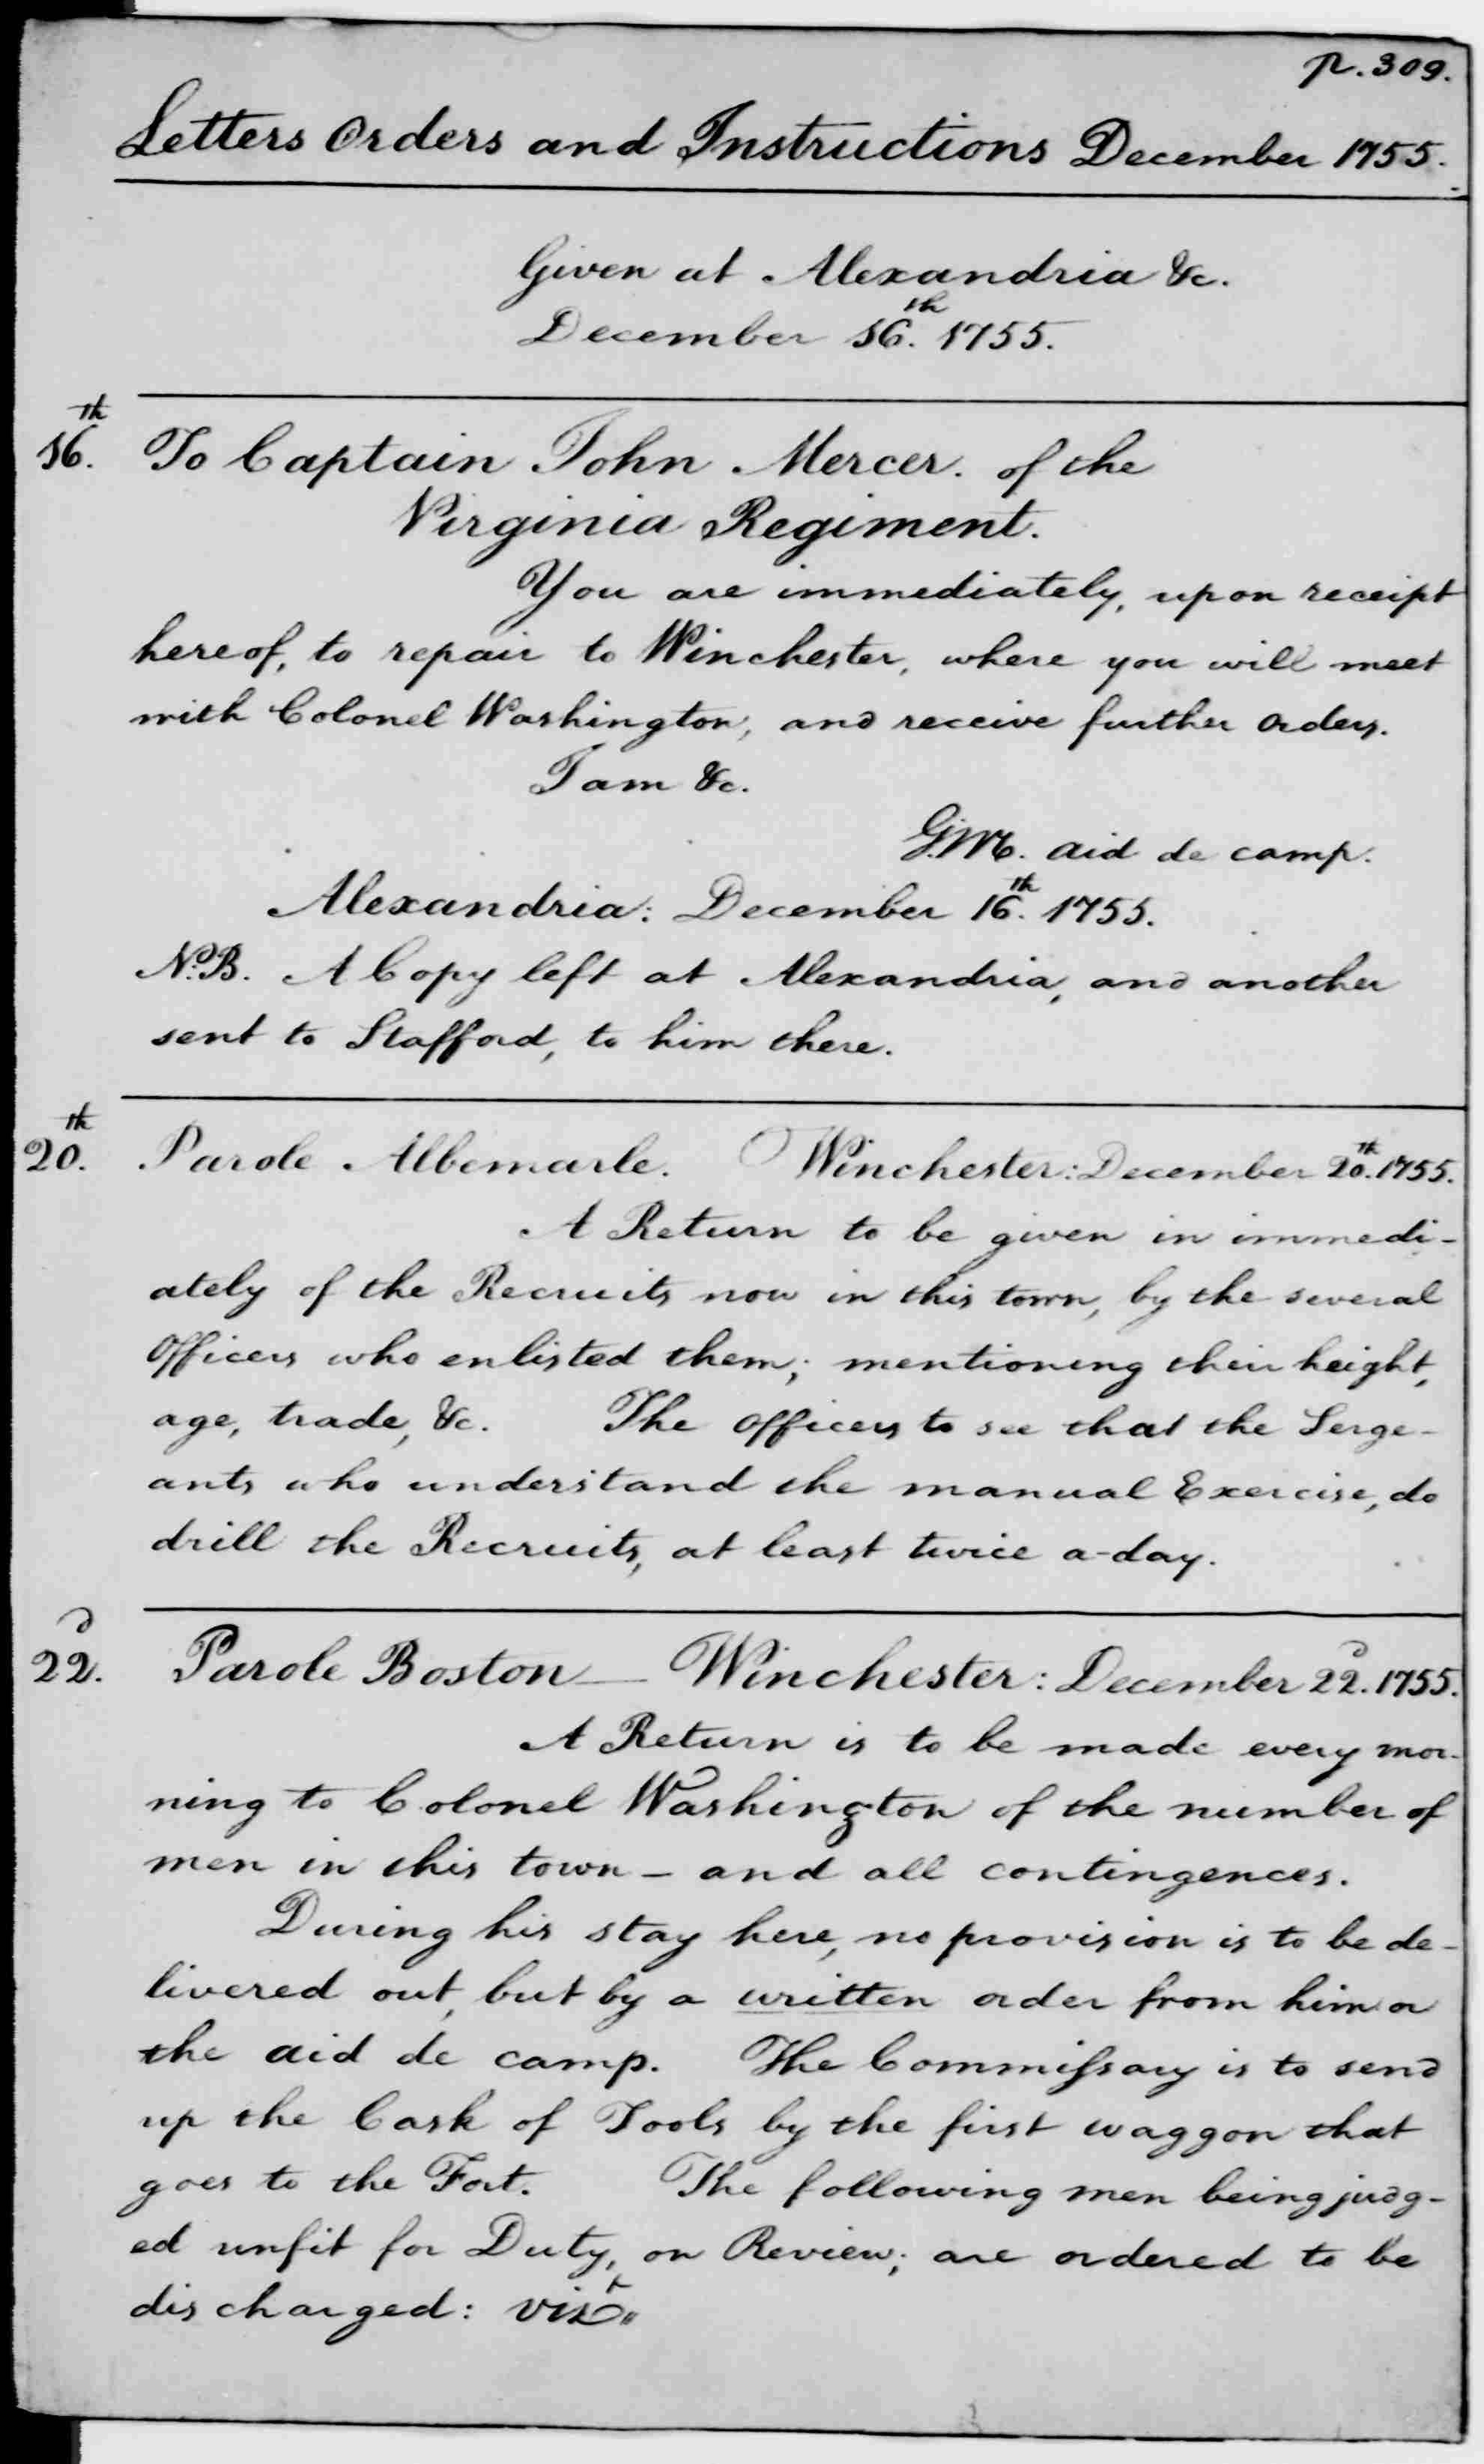 p. 309.
Letters Orders and Instructions December 1755.
Given at Alexandria &c.
December 16th. 1755.
16th. To Captain John Mercer. of the
Virginia Regiment.
You are immediately, upon receipt
hereof, to repair to Winchester, where you will meet
with Colonel Washington, and receive further Orders.
I am &c.
G.M. aid de camp.
Alexandria: December 16th. 1755.
N.B. A Copy left at Alexandria, and another
sent to Stafford, to him there.
20th. Parole Albemarle. Winchester: December 20th. 1755.
A Return to be given in immedi-
ately of the Recruits now in this town, by the several
Officers who enlisted them; mentioning their height,
age, trade, &c. The Officers to see that the Serge-
ants who understand the manual Exercise, do
drill the Recruits, at least twice a-day.
22d. Parole Boston — Winchester: December 22d. 1755.
A Return is to be made every mor-
ning to Colonel Washington of the number of
men in this town - and all contingences.
During his stay here, no provision is to be de-
livered out, but by a written order from him or
the aid de camp. The Commissary is to send
up the Cask of Tools by the first waggon that
goes to the Fort. The following men being judg-
ed unfit for Duty, on Review; are ordered to be
discharged: vizt.